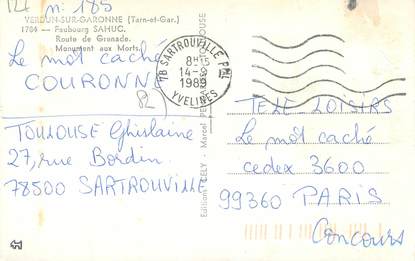 n: 185
VERDUN-SUR-GARONNE (Tarn-et-Gar.)
1706 - Faubourg SAHUC.
Route de Grenade.
Monument aux Morts.
Le mot caché
COURONNE
78 SARTROUVILLE PAL
8H15
14-9
1989
YVELINES
82
TOULOUSE Ghislaine
27, rue Bordin
78500 SARTROUVILLE
Editions CELY - Marcel TOULOUSE
TELE-LOISIRS
Le mot caché
cedex 3600
99360 PARIS
Concours